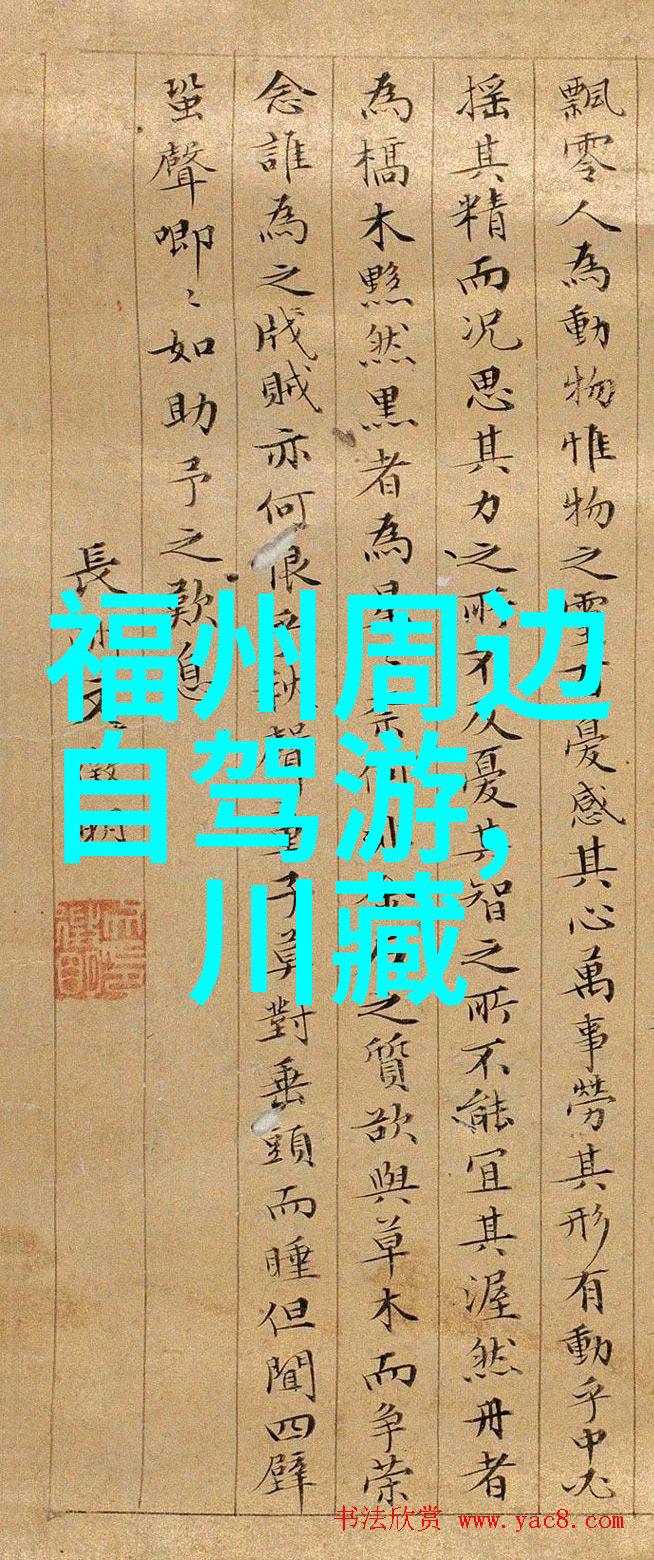 飄零人為動物惟物之靈百憂感其心萬事勞其形有動乎中必
搖其精而況思其力之所不及憂其智之所不能宜其渥然丹者
為槁木黟然黑者為星奈何非金石之質欲與草木而爭荣
念誰為之戕賊亦何恨乎秋聲童子莫對垂頭而睡但聞四壁
蛩聲唧〻如助予之歎息
長洲文徵明
福州周边
自驾游,
川藏
书法欣赏 www.yac8.com